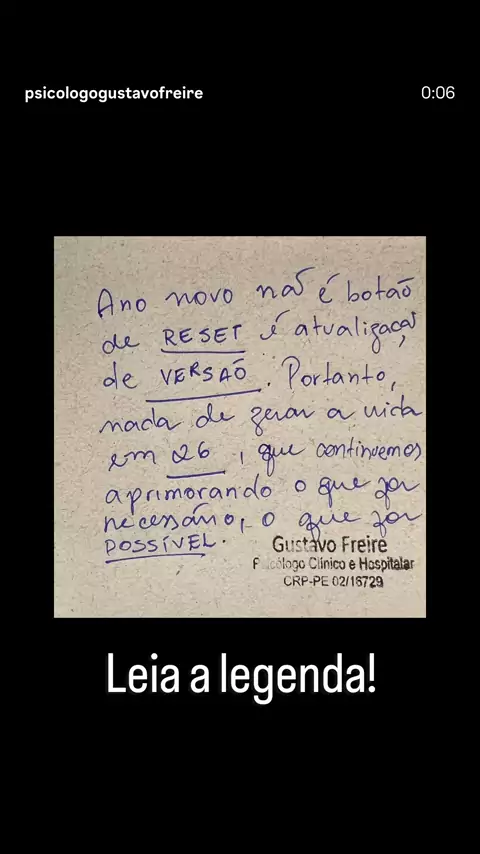 psicologogustavofreire
0:06
Ano novo não é botão
de RESET é atualização
de VERSÃO. Portanto,
nada de zerar a vida
em 26, que continuemos
aprimorando o que for
necessário, o que for
POSSÍVEL.
Gustavo Freire
Psicólogo Clínico e Hospitalar
CRP-PE 02/16729
Leia a legenda!